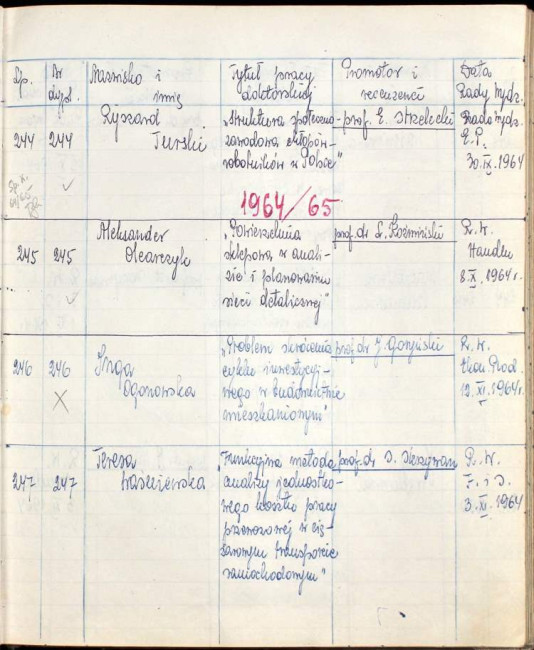 Lp.
Nr
dypl.
Nazwisko i
imię
Tytuł pracy
doktorskiej
Promotor i
recenzenci
Data
Rady Wydz.
244
244
Ryszard
Turski
„Struktura społeczno-
zawodowa chłopów-
robotników w Polsce"
prof. E. Strzelecki
Rada Wydz.
E.P.
30.IX.1964
1964/65
245
245
Aleksander
Olearczyk
„Powierzchnia
sklepowa w anali-
zie i planowaniu
sieci detalicznej"
prof. dr L. Koźmiński
R. W.
Handlu
8.X.1964r.
246
246
Inga
Ogonowska
„Problem skrócenia
cyklu inwestycyj-
nego w budownictwie
mieszkaniowym"
prof. dr J. Goryński
R. W.
Ekon. Prod.
12.XI.1964r.
247
247
Teresa
„Funkcyjna metoda
analizy jednostko-
wego kosztu pracy
przewozowej w cię-
żarowym transporcie
samochodowym"
prof. dr
R. W.
F. i S.
3.XI.1964